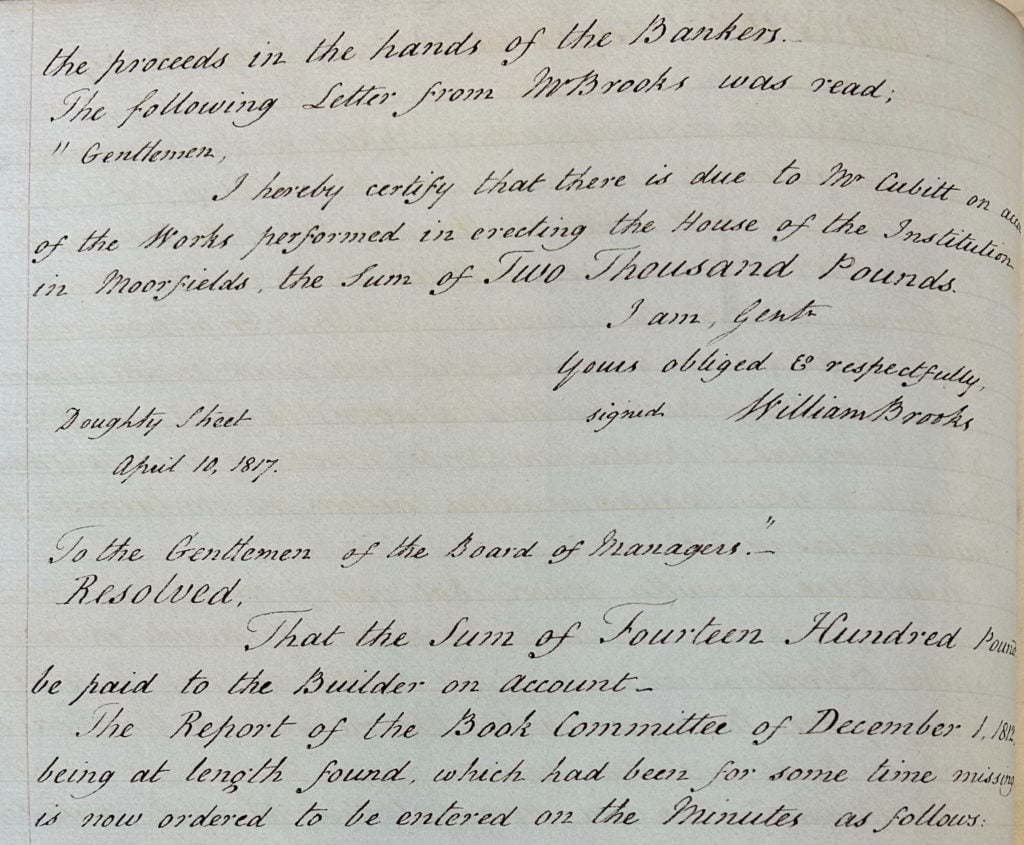 the proceeds in the hands of the Bankers._
The following Letter from Mr Brooks was read;
" Gentlemen,
I hereby certify that there is due to Mr Cubitt on
of the Works performed in erecting the House of the Institution
in Moorfields, the Sum of Two Thousand Pounds.
I am, Gentn
Yours obliged & respectfully,
signed William Brooks
Doughty Street
April 10, 1817.
To the Gentlemen of the Board of Managers."_
Resolved,
That the Sum of Fourteen Hundred Pound
be paid to the Builder on account_
The Report of the Book Committee of December 1, 1812,
being at length found, which had been for some time missing
is now ordered to be entered on the Minutes as follows: